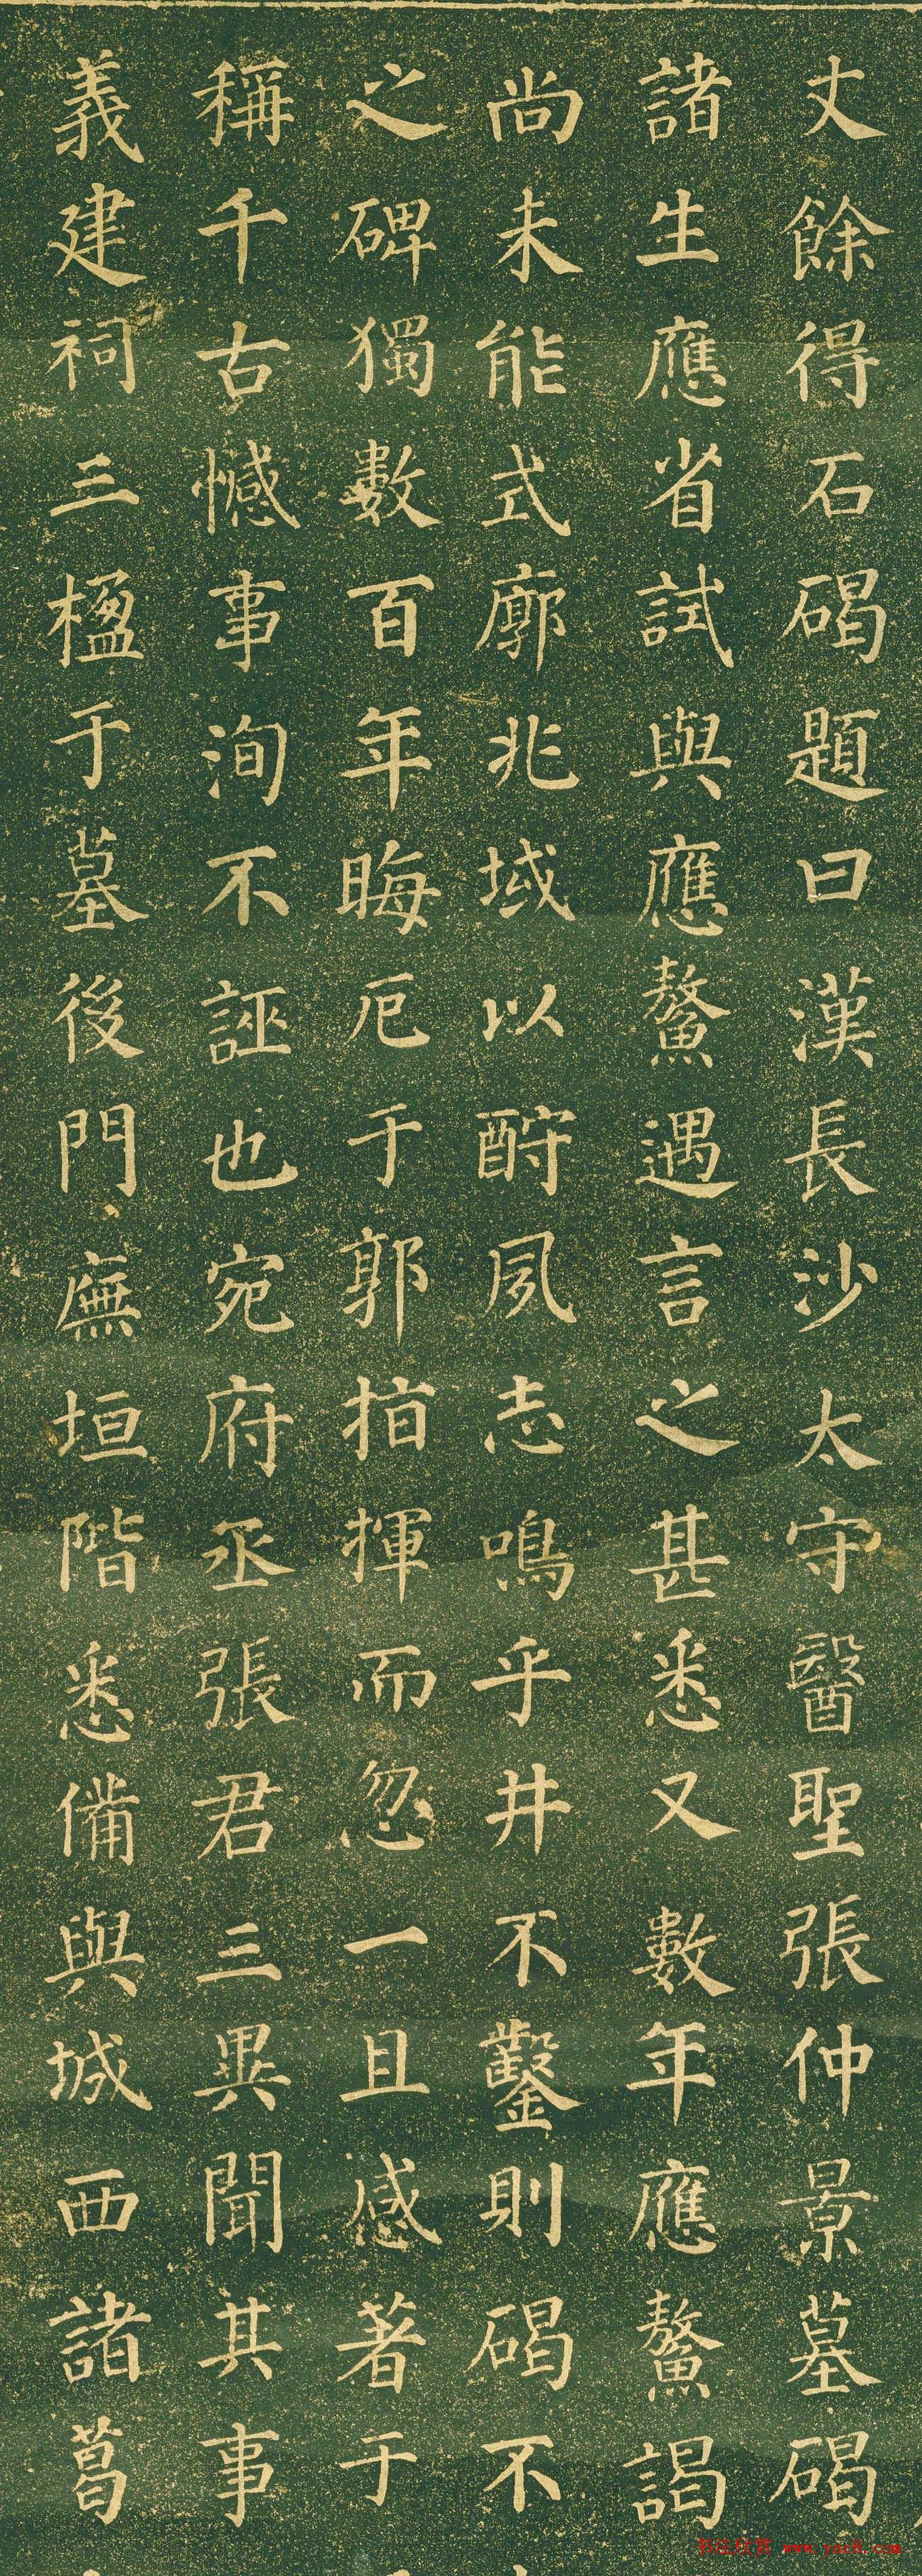 丈餘得石碣題曰漢長沙太守醫聖張仲景墓碣
諸生應省試與應鰲遇言之甚悉又數年應鰲謁
尚未能式廓兆域以酧夙志嗚乎井不鑿則碣不
之碑獨數百年晦厄于郭指揮而忽一旦感著于
稱千古憾事洵不誣也宛府丞張君三異聞其事
義建祠三楹于墓後門廡垣階悉備與城西諸葛
书法欣赏 www.yac8.com